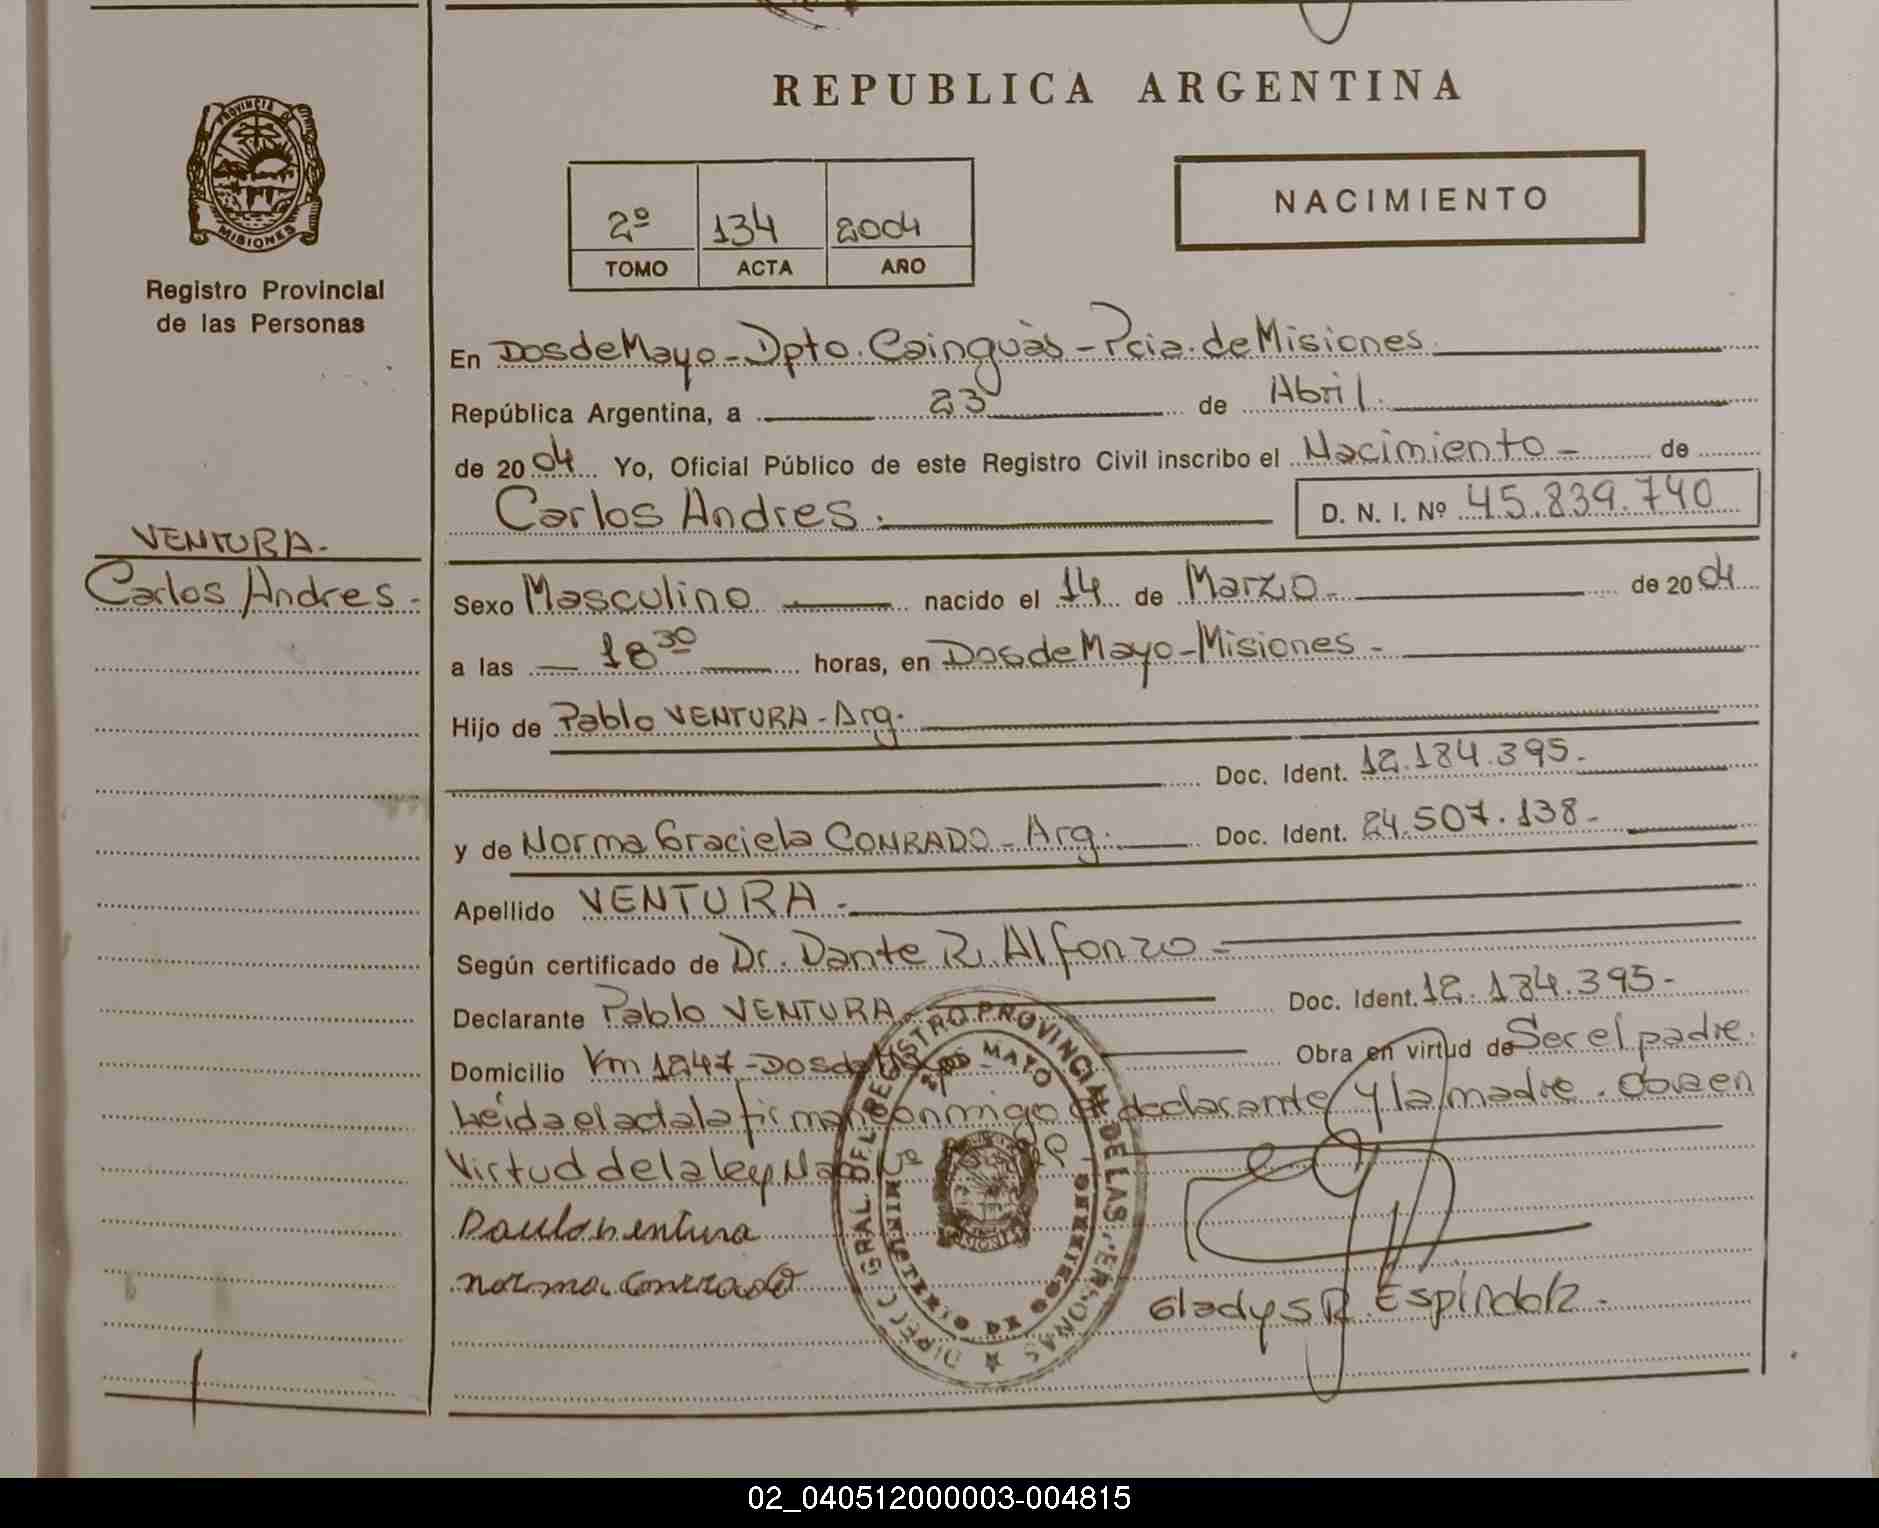 REPUBLICA ARGENTINA
PROVINCIA DE
MISIONES
Registro Provincial
de las Personas
2º 134 2004
TOMO ACTA AÑO
NACIMIENTO
En Dos de Mayo - Dpto. Cainguàs - Pcia. de Misiones
República Argentina, a 23 de Abril.
de 2004 Yo, Oficial Público de este Registro Civil inscribo el Nacimiento - de
Carlos Andres. D. N. I. Nº 45.839.740
VENTURA.
Carlos Andres -
Sexo Masculino nacido el 14 de Marzo. de 2004
a las 18 30 horas, en Dos de Mayo - Misiones -
Hijo de Pablo VENTURA - Arg.
Doc. Ident. 12.184.395.
y de Norma Graciela CONRADO - Arg. Doc. Ident. 24.507.138 -
Apellido VENTURA -
Según certificado de Dr. Dante R. Alfonzo -
Declarante Pablo VENTURA. Doc. Ident. 12.184.395 -
Domicilio Km 1247 - Dos de Obra en virtud de Ser el padre.
Leída el acta la firman conmigo el declarante y la madre.
Virtud de la ley
DIREC. GRAL DEL REGISTRO PROVINCIAL DE LAS PERSONAS
MINISTERIO DE GOBIERNO
MAYO
norma conrado
Gladys R. Espindola -
02_040512000003-004815